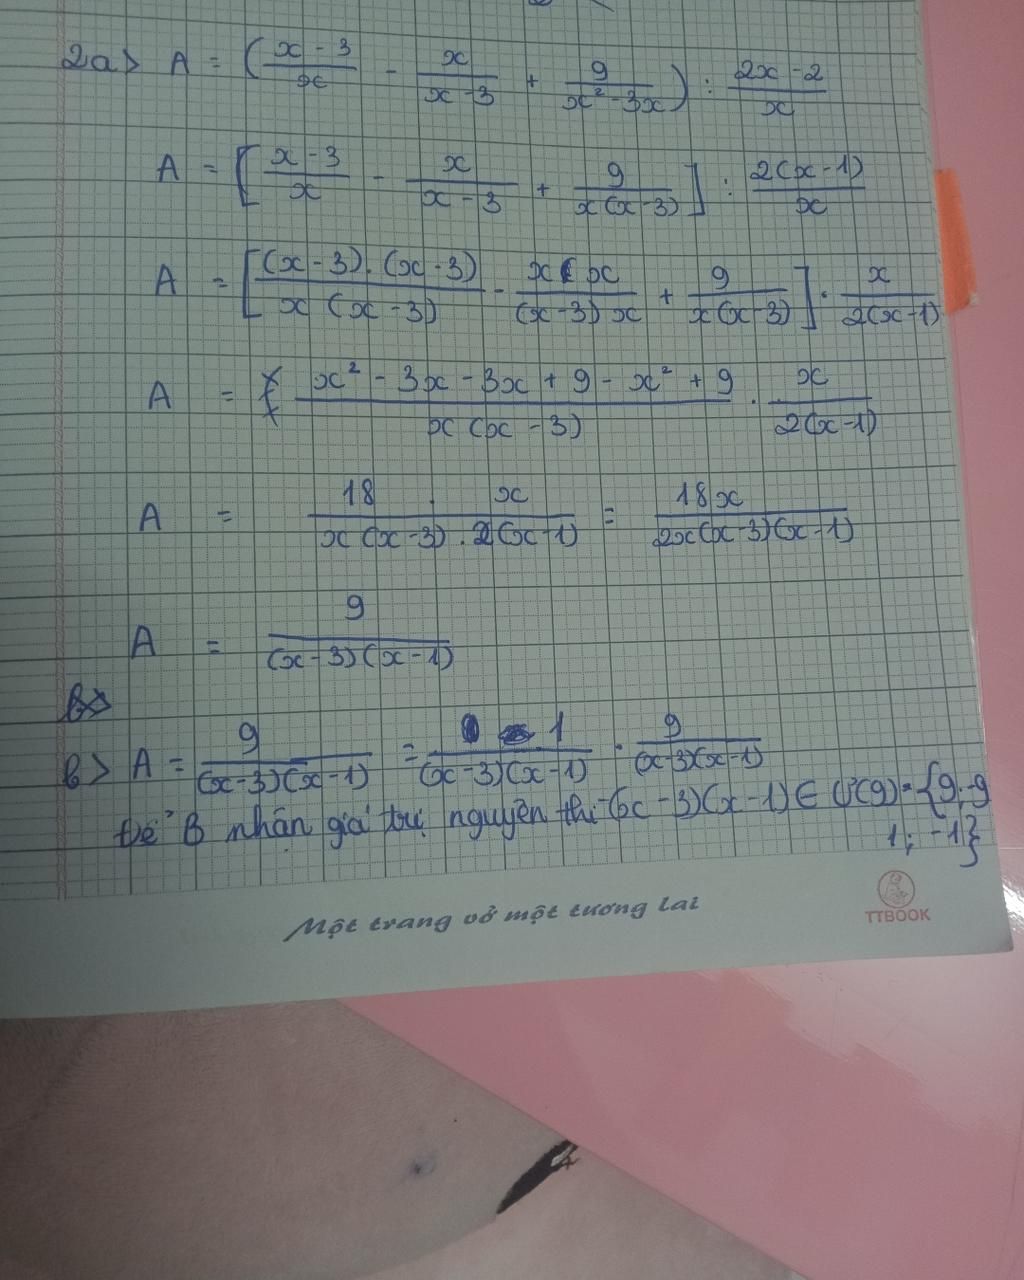 2a> A = (x - 3/x - x/x - 3 + 9/x² - 3x) : 2x - 2/x
A = [x - 3/x - x/x - 3 + 9/x(x - 3)] : 2(x - 1)/x
A = [(x - 3).(x - 3)/x (x - 3) - x . x/(x - 3) x + 9/x(x - 3)] . x/2(x - 1)
A = x² - 3x - 3x + 9 - x² + 9/x (x - 3) . x/2(x - 1)
A = 18 . x/x (x - 3) . 2(x - 1) = 18x/2x(x - 3)(x - 1)
A = 9/(x - 3)(x - 1)
b>
b> A = 9/(x - 3)(x - 1) = 1/(x - 3)(x - 1) . 9/(x - 3)(x - 1)
Để B nhận giá trị nguyên thì (x - 3)(x - 1) ∈ Ư(9) = {9; -9
1; -1}
Một trang vở một tương lai
TTBOOK